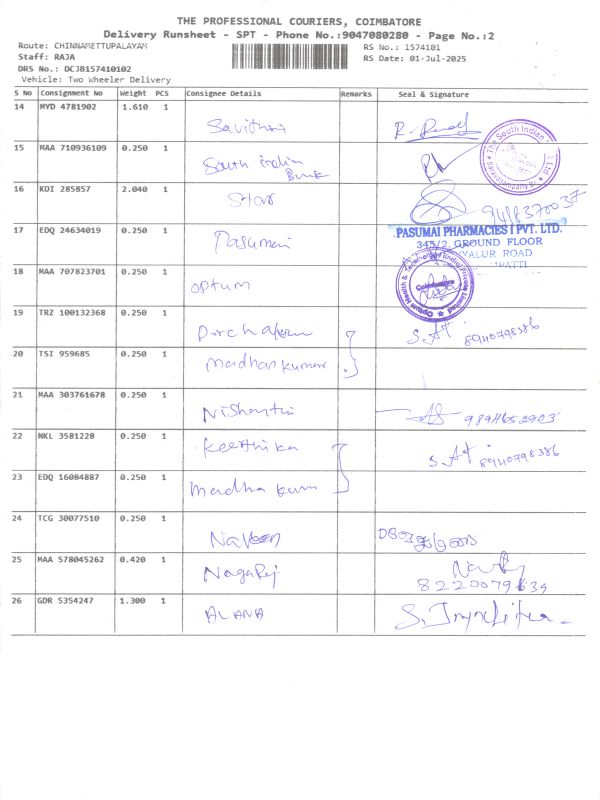 THE PROFESSIONAL COURIERS, COIMBATORE
Delivery Runsheet - SPT - Phone No.:9047080280 - Page No.:2
Route: CHINNAMETTUPALAYAM RS No.: 1574101
Staff: RAJA RS Date: 01-Jul-2025
DRS No.: DCJB157410102
Vehicle: Two Wheeler Delivery
S No Consignment No Weight PCS Consignee Details Remarks Seal & Signature
14 MYD 4781902 1.610 1
Savithri
15 MAA 710936109 0.250 1
South indian
Bank
The South Indian
16 KDI 285857 2.040 1
Star
17 EDQ 24634019 0.250 1
Pasumai
PASUMAI PHARMACIES I PVT. LTD.
345/2, GROUND FLOOR
YALUR ROAD
18 MAA 707823701 0.250 1
optum
Coimbatore
19 TRZ 100132368 0.250 1
S. 8940798386
20 TSI 959685 0.250 1
Madhan kumar
21 MAA 303761678 0.250 1
Nishanthi
9894652903
22 NKL 3581228 0.250 1
Keerthika
S. 8940798386
23 EDQ 16084887 0.250 1
Madha kum
24 TCG 30077510 0.250 1
Naveen
25 MAA 578045262 0.420 1
Nagaraj
26 GDR 5354247 1.300 1
ALANA